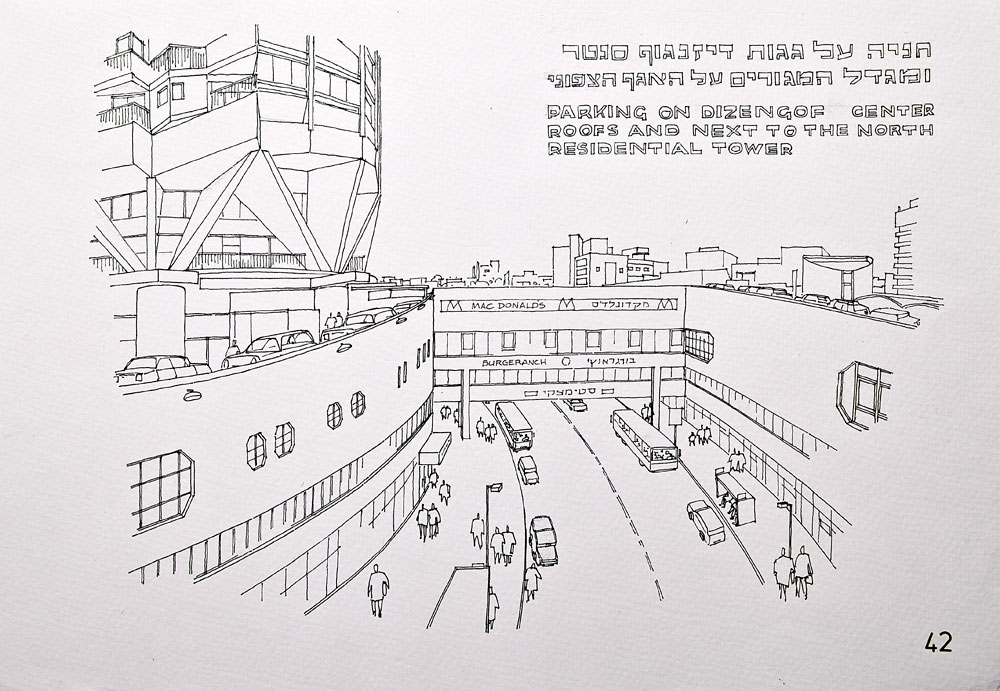 חניה על גגות דיזנגוף סנטר
ומגדל המגורים על האגף הצפוני
PARKING ON DIZENGOF CENTER
ROOFS AND NEXT TO THE NORTH
RESIDENTIAL TOWER
MAC DONALD'S מקדונלד'ס
BURGERANCH בורגראנץ'
סטימצקי
42